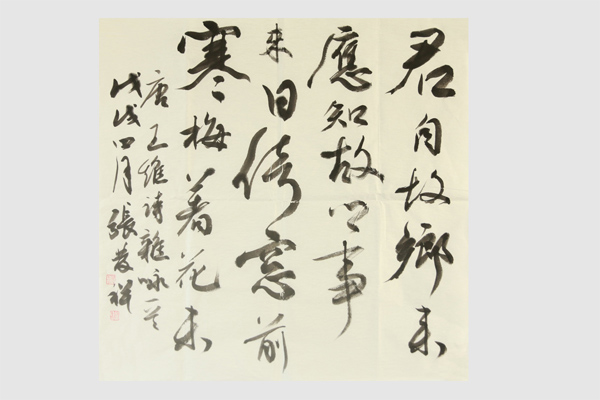 君自故鄉来
應知故鄉事
来日倚窓前
寒梅着花未
唐王維詩雜咏一首
戊戌四月張發祥